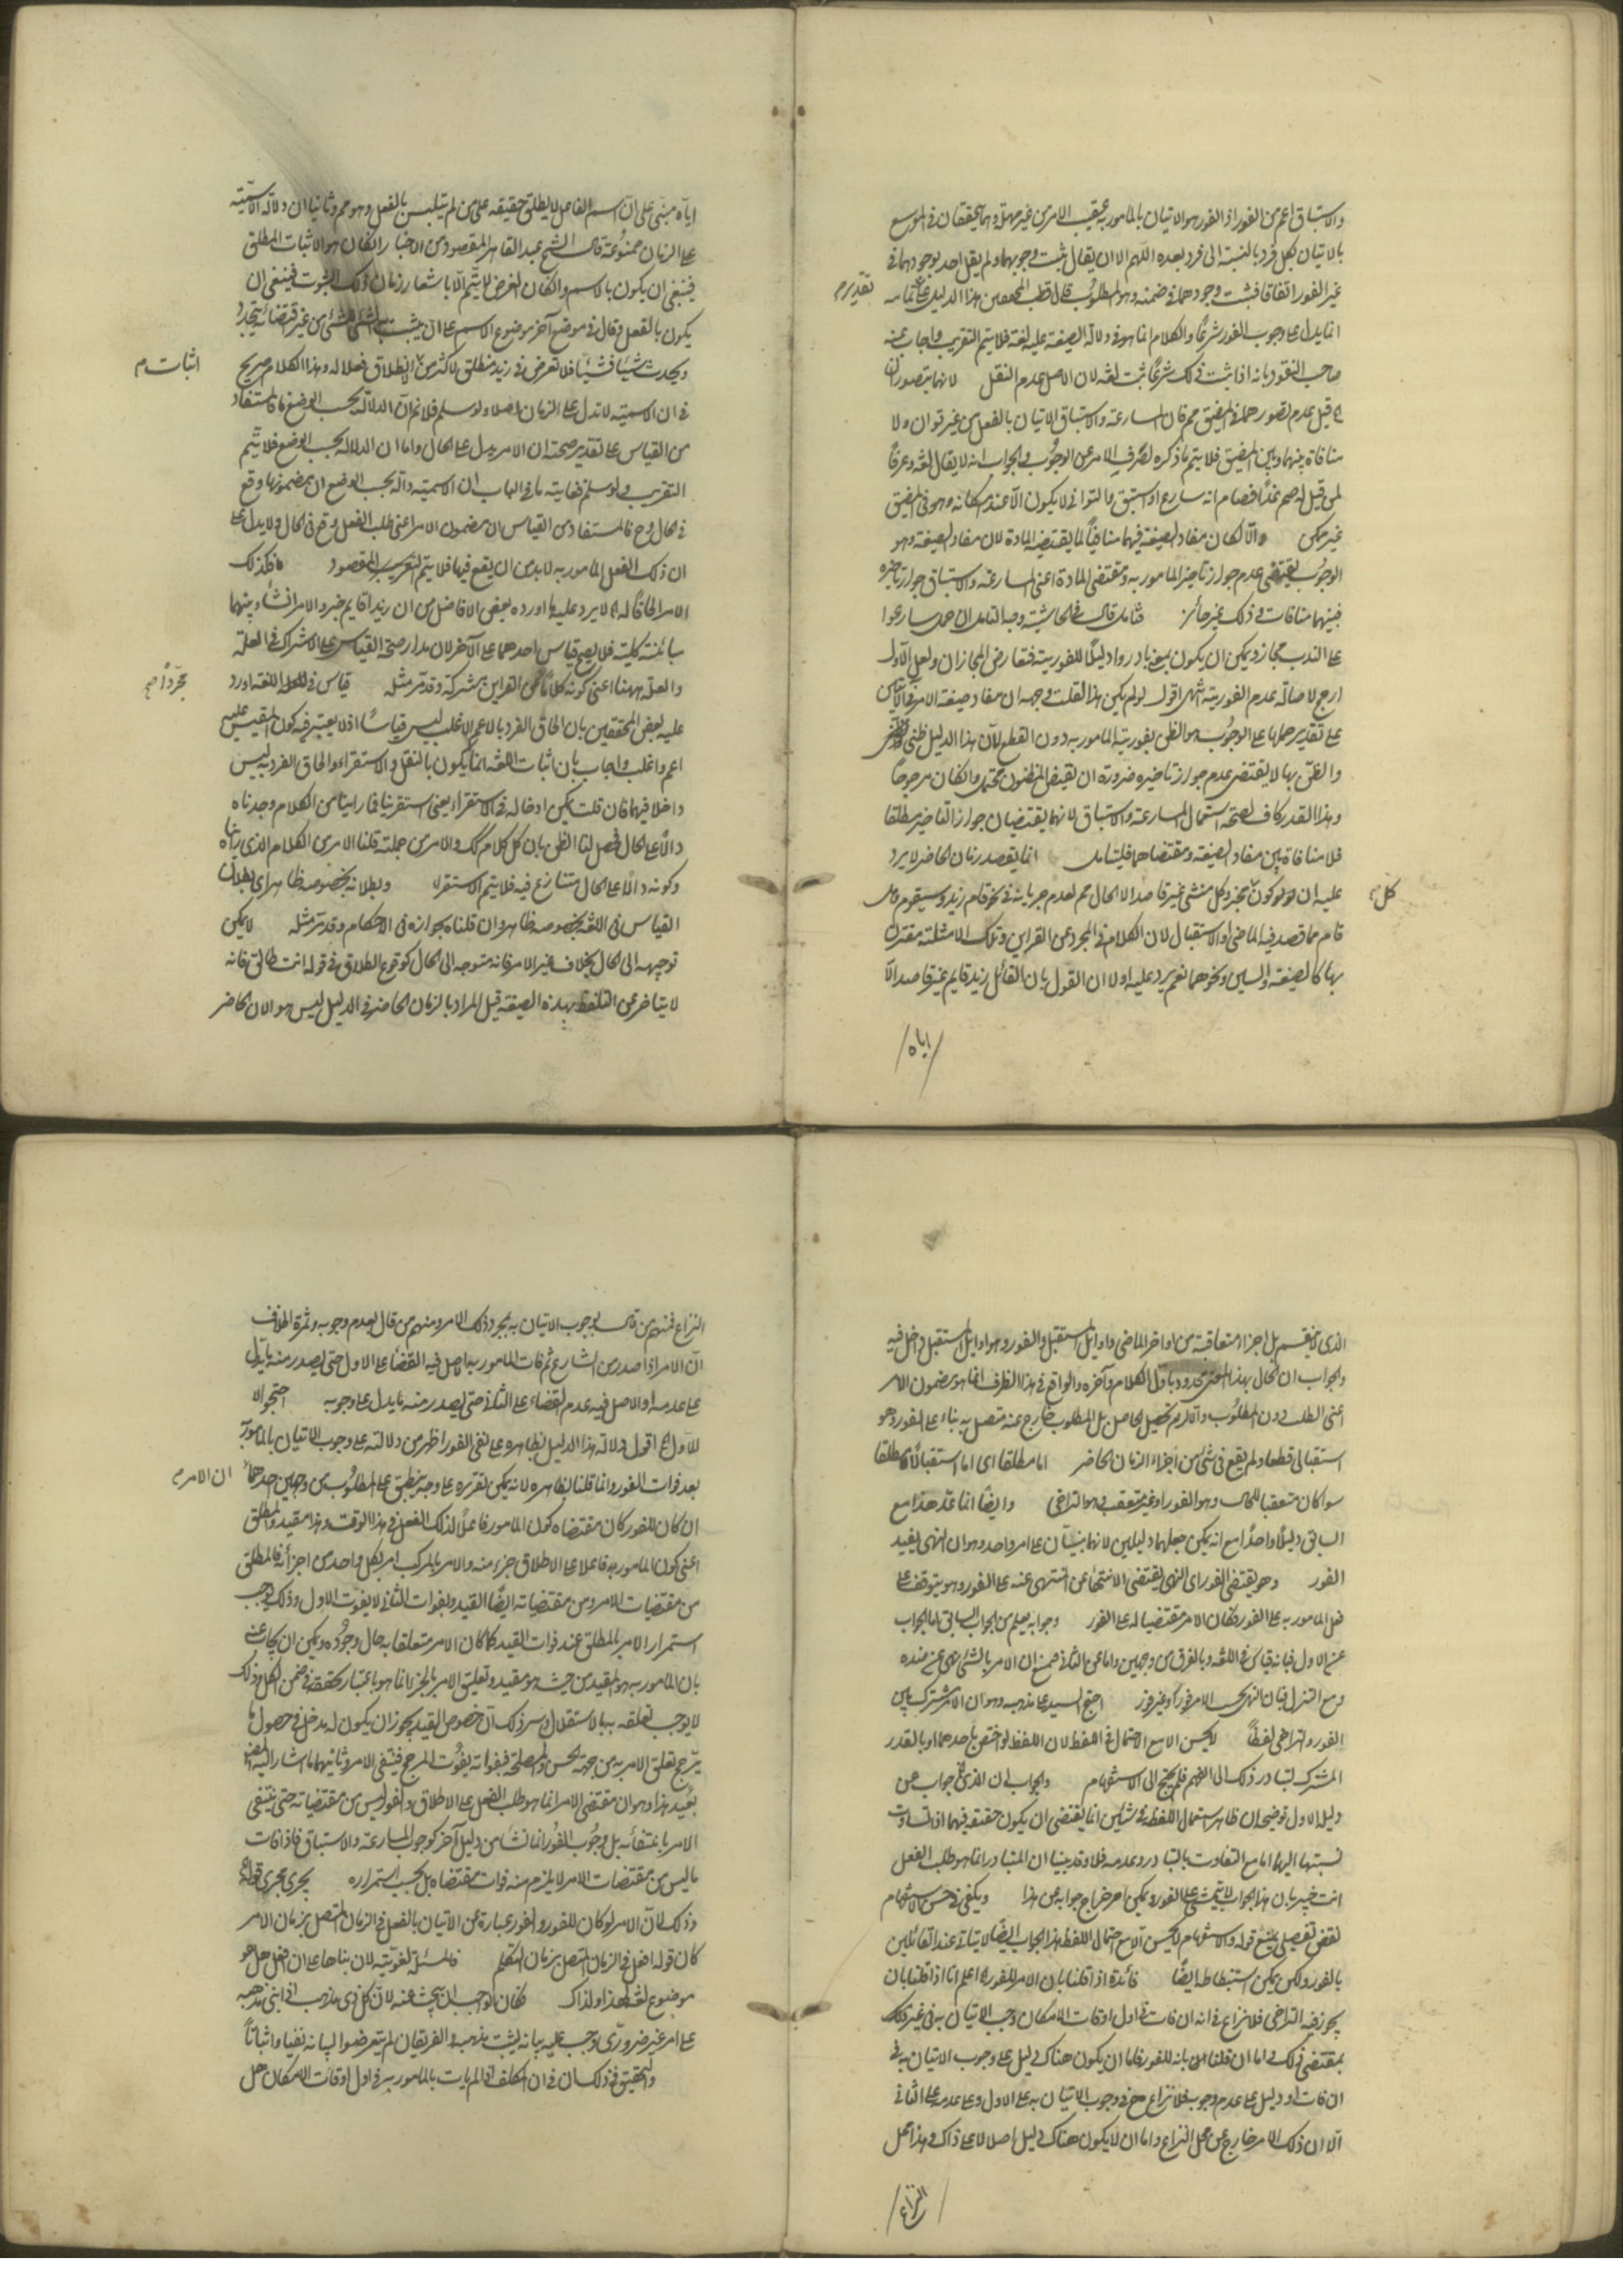 والاستباق اعم من الفور اذ الفور هو الاتيان بالمامور به عقيب الامر من غير مهلة وهما يتحققان في الموسع
بالاتيان بكل فرد بالنسبة الى فرد بعده اللهم الا ان يقال ثبت وجوبهما ولم يقل احد بوجودهما في
غير الفور اتفاقا فيثبت وجودهما في ضمنه وهو المطلوب قال قطب المحققين هذا الدليل على تمامه
تقديره
انما يدل على وجوب الفور شرعًا والكلام انما هو في دلالة الصيغة عليه لغة فلا يتم التقريب واجاب عنه
صاحب النقود بانه اذا ثبت ذلك شرعًا ثبت لغة لان الاصل عدم النقل لانهما يتصوران
الخ قيل عدم تصورهما في المضيق مم فان المسارعة والاستباق الاتيان بالفعل من غير توان ولا
منافاة بينهما وبين المضيق فلا يتم ما ذكره لصرف الامر عن الوجوب والجواب انه لا يقال لغة وعرفًا
لمن قيل له صم غدًا فصام انه سارع او استبق والتواني لا يكون الا عند امكانه وهو في المضيق
غير ممكن والا لكان مفاد الصيغة فيهما منافيًا لما يقتضيه المادة لان مفاد الصيغة وهو
الوجوب يقتضي عدم جواز تاخير المامور به ومقتضى المادة اعني المسارعة والاستباق جواز تاخيره
فبينهما منافات وذلك غير جائز فتامل قال في الحاشية وجه التامل ان حمل سارعوا
على الندب مجاز ويمكن ان يكون بمعنى بادروا دليلًا للفورية فتعارض المجازان ولعل الاول
ارجح لاصالة عدم الفورية انتهى اقول لو لم يكن هذا لقلت وجهه ان مفاد صيغة الامر في الآيتين
على تقدير حملها على الوجوب هو الظن بفورية المامور به دون القطع لان هذا الدليل ظني
والظن بها لا يقتضي عدم جواز تاخيره ضرورة ان نقيض المظنون محتمل وان كان مرجوحًا
وهذا القدر كاف لصحة استعمال المسارعة والاستباق لانهما يقتضيان جواز التاخير مطلقا
فلا منافاة بين مفاد الصيغة ومقتضاهما فليتامل انما يقصد زمان الحاضر لا يرد
عليه ان كون كل مخبر وكل منشئ غير قاصد الا الحال مم لعدم جريانه في نحو قام زيد وسيقوم
كل
قام مما قصد فيه الماضي او الاستقبال لان الكلام في المجرد عن القراين وتلك الامثلة مقترن
بها كالصيغة والسين ونحوهما نعم يرد عليه اولا ان القول بان القائل زيد قايم غير قاصد الا
اياه
اياه مبني على ان اسم الفاعل لا يطلق حقيقة على من لم يتلبس بالفعل وهو مم وثانيا ان دلالة الاسمية
على الزمان ممنوعة قال الشيخ عبد القاهر المقصود من الاخبار ان كان هو الاثبات المطلق
فينبغي ان يكون بالاسم وان كان الغرض لا يتم الا باشعار زمان ذلك الثبوت فينبغي ان
يكون بالفعل وقال في موضع آخر موضوع الاسم على ان يثبت به الشئ للشئ من غير اقتضاء انه يتجدد
ويحدث شيئًا فشيئًا فلا تعرض في زيد منطلق لاكثر من الانطلاق فعلا له وهذا الكلام صريح
اثبات م
في ان الاسمية لا تدل على الزمان اصلا ولو سلم فلا نم ان الدلالة بحسب الوضع فالمستفاد
من القياس على تقدير صحته ان الامر يدل على الحال واما ان الدلالة بحسب الوضع فلا يتم
التقريب ولو سلم فغايته ما في الباب ان الاسمية دالة بحسب الوضع ان مضمونها وقع
في الحال وح فالمستفاد من القياس ان مضمون الامر اعني طلب الفعل وقع في الحال ولا يدل على
ان ذلك الفعل المامور به لا بد من ان يقع فيها فلا يتم التقريب المقصود فكذلك
الامر الحاقًا له الخ لا يرد عليه ما اورده بعض الافاضل من ان زيدا قايم خبر والامر انشاء وبينهما
مبائنة كلية فلا يصح قياس احدهما على الآخر لان مدار صحة القياس على الاشتراك في العلة
والعلة ههنا اعني كونه كلامًا عن القراين مشتركة وقد مر مثله قياس في اللغة اورد
مجردًا صح
عليه بعض المحققين بان الحاق الفرد بالاعم الاغلب ليس قياسًا اذ لا يعتبر فيه كون المقيس عليه
اعم واغلب واجاب بان اثبات اللغة انما يكون بالنقل والاستقراء والحاق الفرد به ليس
داخلا فيهما فان قلت يمكن ادخاله في الاستقراء يعني استقرينا فما راينا من الكلام وجدناه
دالًا على الحال فحصل لنا الظن بان كل كلام كك والامر من جملته قلنا الامر من الكلام الذي رايناه
وكونه دالًا على الحال متنازع فيه فلا يتم الاستقراء وبطلانه بخصوصه ظاهر اي بطلان
القياس في اللغة بخصوصه ظاهر وان قلناه بجوازه في الاحكام وقد مر مثله لا يمكن
توجيهه الى الحال بخلاف غير الامر فانه متوجه الى الحال كوقوع الطلاق في قوله انت طالق فانه
لا يتاخر عن التلفظ بهذه الصيغة قيل المراد بالزمان الحاضر في الدليل ليس هو الان الحاضر
الذي لا ينقسم بل اجزاء متعاقبة من اواخر الماضي واوايل المستقبل والفور وهو اوايل المستقبل داخل فيه
والجواب ان الحال بهذا المعنى محدود باول الكلام وآخره والواقع في هذا الظرف انما هو مضمون الامر
اعني الطلب دون المطلوب والا لزم تحصيل الحاصل بل المطلوب خارج عنه متصل به بناء على الفور وهو
استقبالي قطعا ولم يقع في شئ من اجزاء الزمان الحاضر اما مطلقا اي اما استقبالًا مطلقا
سوا كان متعقبا للحال وهو الفور او غير متعقب وهو التراخي وايضًا انما عد هذا مع
السابق دليلًا واحدًا مع انه يمكن جعلهما دليلين لانهما مبنيان على امر واحد وهو ان النهي يفيد
الفور وهو يقتضي الفور اي النهي يقتضي الانتهاء عن المنتهى عنه على الفور وهو يتوقف على
فعل المامور به على الفور فكان الامر مقتضيا له على الفور وجوابه يعلم من الجواب السابق اما الجواب
عن الاول فبانه قياس في اللغة وبالفرق من وجهين واما عن الثاني فبمنع ان الامر بالشئ نهي عن ضده
ومع التنزل فبان النهي بحسب الامر فورًا وغير فور احتج السيد على مذهبه وهو ان الامر مشترك بين
الفور والتراخي لفظًا لا يحسن الا مع الاحتمال في اللفظ لان اللفظ لو اختص باحدهما او بالقدر
المشترك لتبادر ذلك الى الفهم فلم يحتج الى الاستفهام والجواب ان الذي الخ جواب عن
دليل الاول توضيحه ان ظاهر استعمال اللفظ في شيئين انما يقتضي ان يكون حقيقة فيهما اذا تساوت
نسبتها اليهما اما مع التفاوت بالتبادر وعدمه فلا وقد بينا ان المتبادر انما هو طلب الفعل
انت خبير بان هذا الجواب لا يتمشى على الفور ويمكن استخراج جوابه عن هذا ويكفي في حسن الاستفهام
نقض تفصيلي بمنع قوله والاستفهام لا يحسن الا مع احتمال اللفظ هذا الجواب ايضًا لا يتاتى عند القائلين
بالفور ولكن يمكن استنباطه ايضًا فائدة اذا قلنا بان الامر للفور الخ اعلم انا اذا قلنا بان
يجوز فيه التراخي فلا نزاع في انه ان فات في اول اوقات الامكان وجب الاتيان به في غير ذلك
بمقتضى ذلك واما ان قلنا بانه للفور فاما ان يكون هناك دليل على وجوب الاتيان به في
ان فات او دليل على عدم وجوبه فلا نزاع ح في وجوب الاتيان به على الاول وعلى عدمه على الثاني
الا ان ذلك الامر خارج عن محل النزاع واما ان لا يكون هناك دليل اصلا لا على ذاك وهذا محل
النزاع
النزاع فمنهم من قال بوجوب الاتيان به بمجرد ذلك الامر ومنهم من قال بعدم وجوبه وثمرة الخلاف
ان الامر اذا صدر من الشارع ثم فات المامور به الاصل فيه القضاء على الاول حتى يصدر منه ما يدل
على عدمه والاصل فيه عدم القضاء على الثاني حتى يصدر منه ما يدل على وجوبه احتجوا
للاول الخ اقول دلالة هذا الدليل بظاهره على نفي الفور اظهر من دلالته على وجوب الاتيان بالمامور به
بعد فوات الفور وانما قلنا بظاهره لانه يمكن تقريره على وجه ينطبق على المطلوب من وجهين احدهما
ان الامر م
ان كان للفور كان مقتضاه كون المامور فاعلًا لذلك الفعل في هذا الوقت وهذا مقيد والمطلق
اعني كون المامور به فاعلا على الاطلاق جزء منه والامر بالمركب امر بكل واحد من اجزائه فالمطلق
من مقتضيات الامر ومن مقتضياته ايضًا القيد وبفوات الثاني لا يفوت الاول وذلك يوجب
استمرار الامر بالمطلق عند فوات القيد كما كان الامر متعلقا به حال وجوده ويمكن ان يجاب عنه
بان المامور به هو المقيد من حيث هو مقيد وتعليق الامر بالجزء انما هو باعتبار تحققه في ضمن الكل وذلك
لا يوجب تعلقه به بالاستقلال وسر ذلك ان خصوص القيد يجوز ان يكون له مدخل في حصول ما
يرجح تعلق الامر به من جهة الحسن والمصلحة فبفواته يفوت المرجح فينتفي الامر وثانيهما ما اشار اليه المص
بعيد هذا وهو ان مقتضى الامر انما هو طلب الفعل على الاطلاق والفور ليس من مقتضياته حتى ينتفي
الامر بانتفائه بل وجوب الفور انما نشا من دليل آخر كوجوب المسارعة والاستباق فاذا فات
ما ليس من مقتضيات الامر لا يلزم منه فوات مقتضاه بل يجب استمراره يجري مجرى قوله
وذلك لان الامر لو كان للفور والفور عبارة عن الاتيان بالفعل في الزمان المتصل بزمان الامر
كان قوله افعل في الزمان المتصل بزمان التكلم فالمسئلة لغوية لان بناها على ان افعل هل هو
موضوع لغة لهذا او لذاك فكان الواجب ان يبحث عنه لان كل ذي مذهب اذا بنى مذهبه
على امر غير ضروري وجب عليه بيانه ليثبت مذهبه والفريقان لم يتعرضوا لبيانه نفيا واثباتًا
والتحقيق في ذلك ان في ان المكلف اذا لم يات بالمامور به في اول اوقات الامكان هل